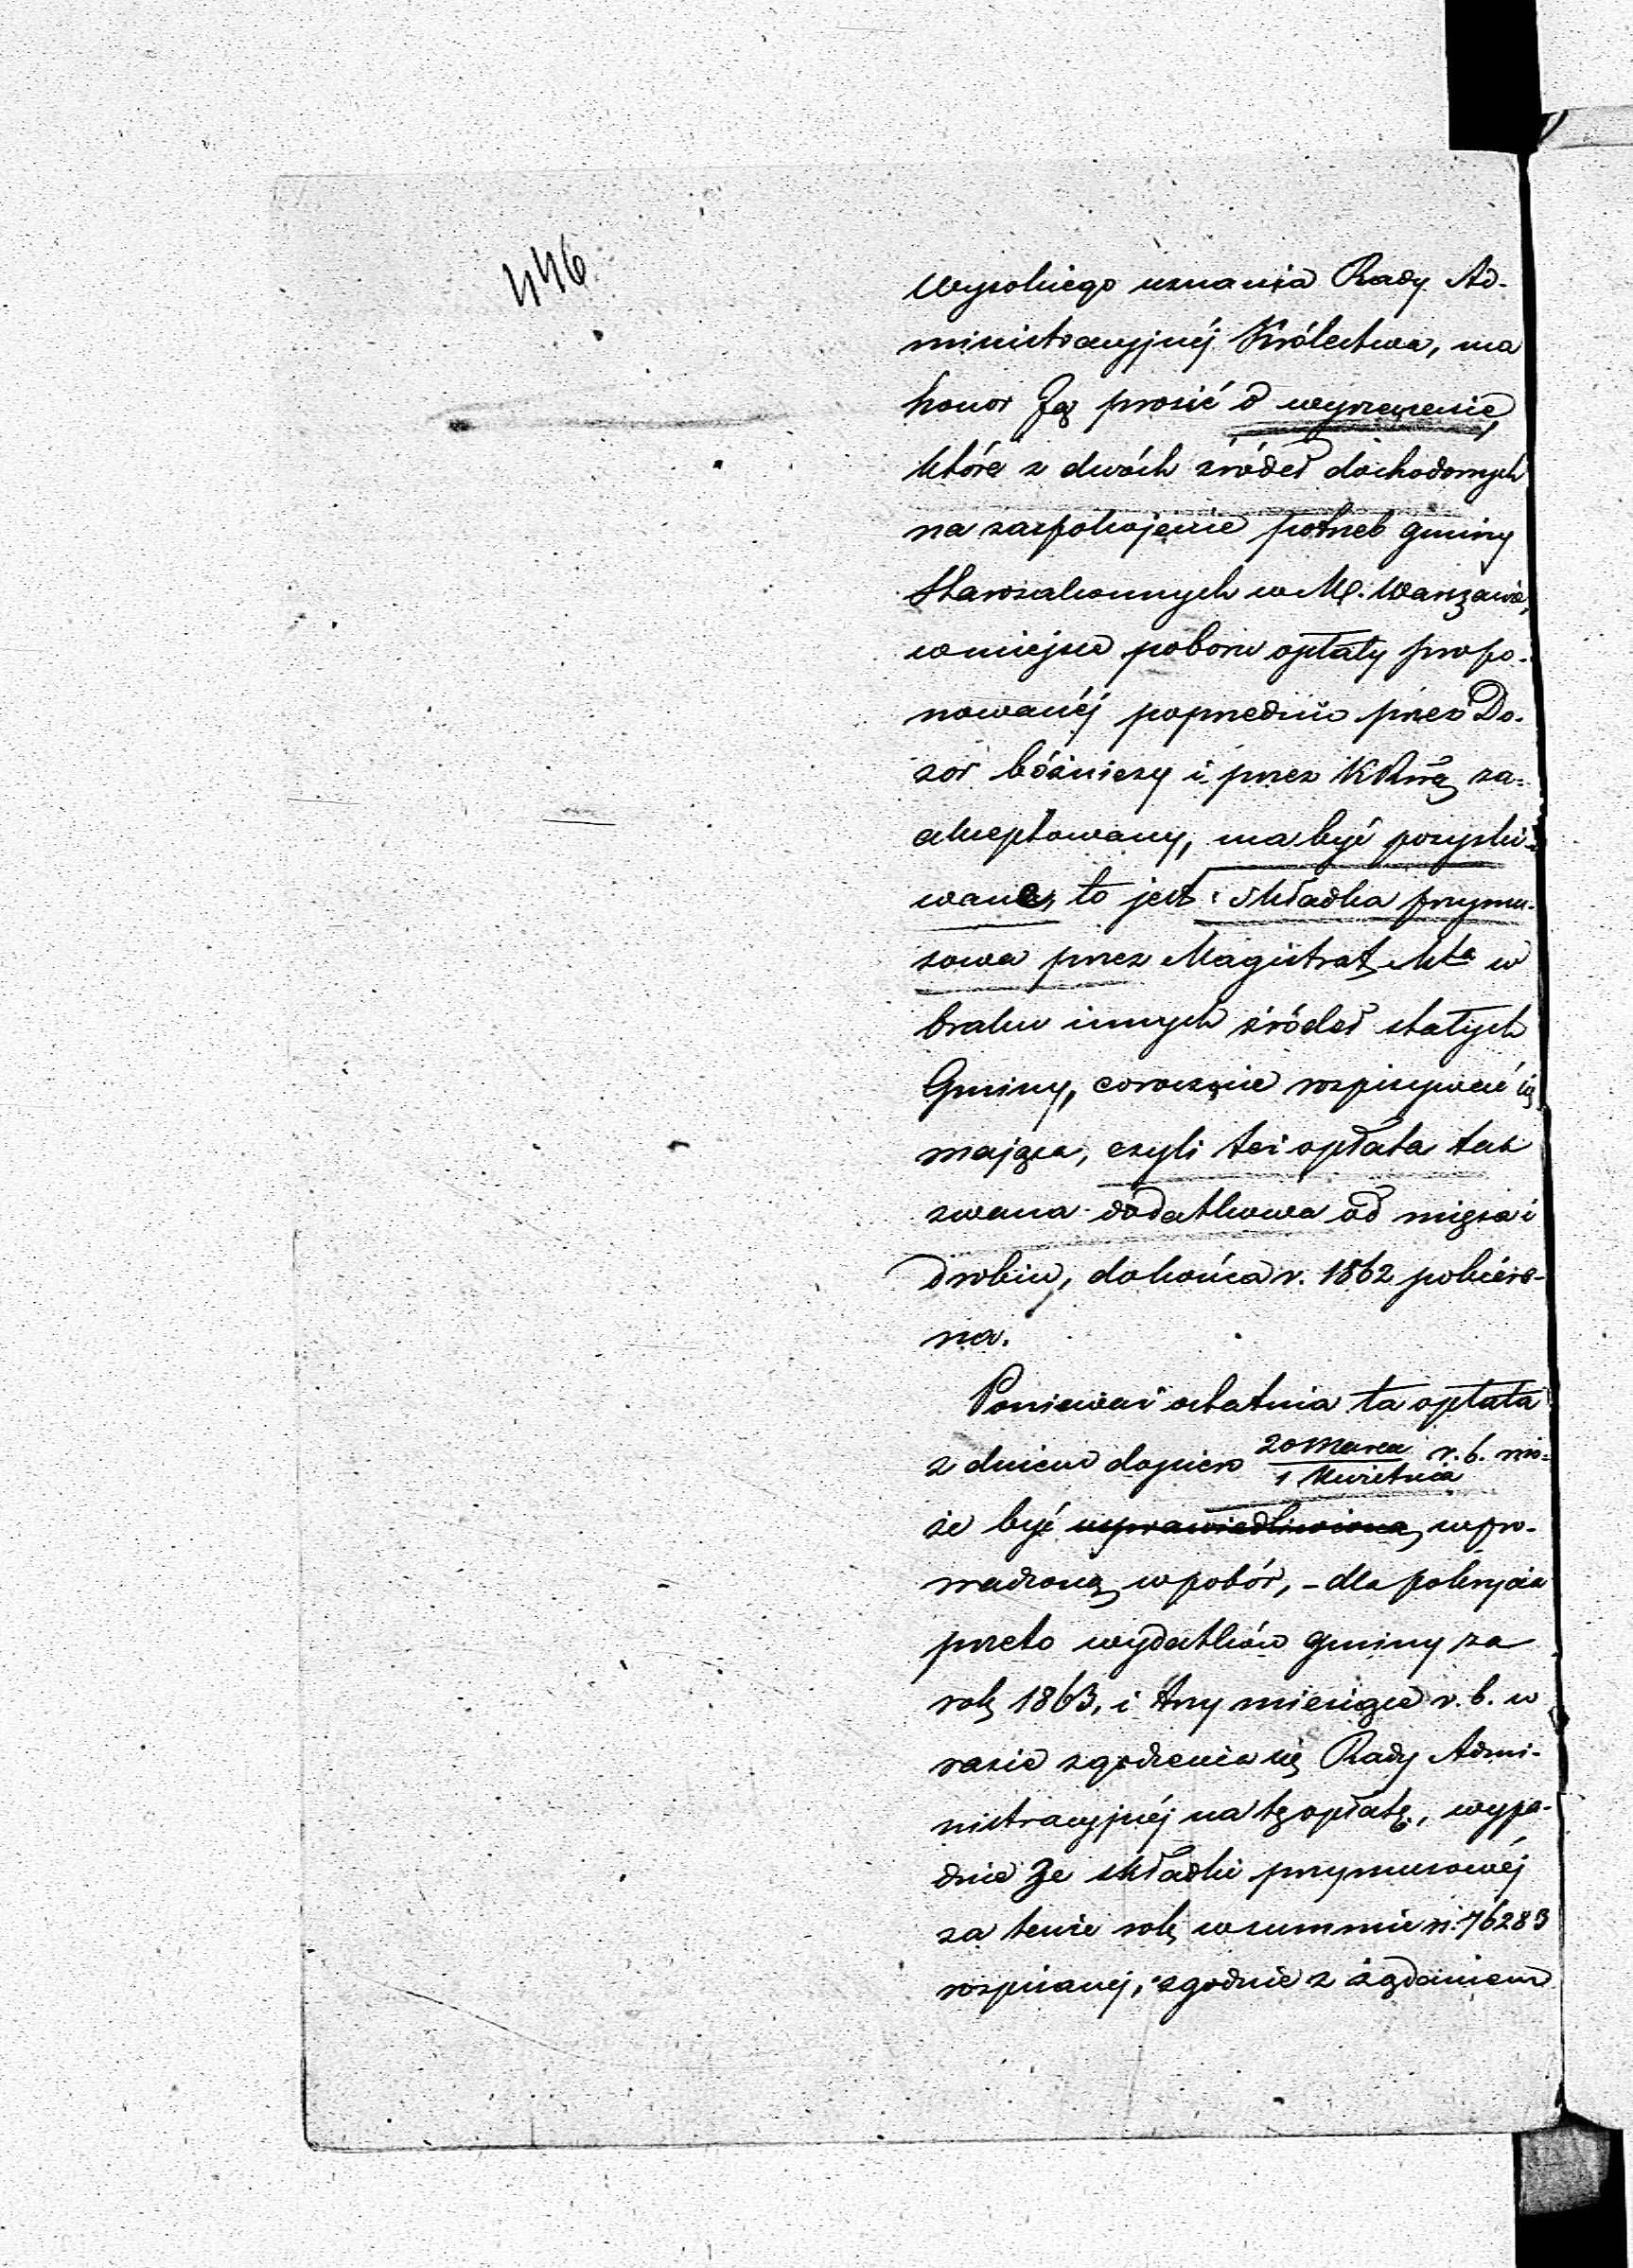 446
Wysokiego uznania Rady Ad-
ministracyjnéj Królestwa, ma
honor Ją prosić o wyrzeczenie,
które z dwóch źródeł dochodowych
na zaspokojenie potrzeb gminy
Starozakonnych w M. Warszawie,
w miejsce poboru opłaty propo-
nowanéj poprzednio przez Do-
zór bóżniczy i przez KRSW za-
akceptowany, ma być pozyski-
wane, to jest: składka przymu-
sowa przez Magistrat Mta w
braku innych źródeł stałych
Gminy, corocznie rozpisywać się
mająca, czyli też opłata tak
zwana dodatkowa od mięsa i
drobiu, do końca r. 1862 pobiera-
na.
Ponieważ ostatnia ta opłata
z dniem dopiero 20 Marca / 1 Kwietnia r. b. mo-
że być usprawiedliwiona, wpro-
wadzoną w pobór, - dla pokrycia
przeto wydatków gminy za
rok 1863, i trzy miesiące r. b. w
razie zgodzenia się Rady Admi-
nistracyjnéj na tę opłatę, wypa-
dnie Ze składki przymusowéj
za tenże rok w summie rs. 76283
rozpisanej, zgodnie z żądaniem